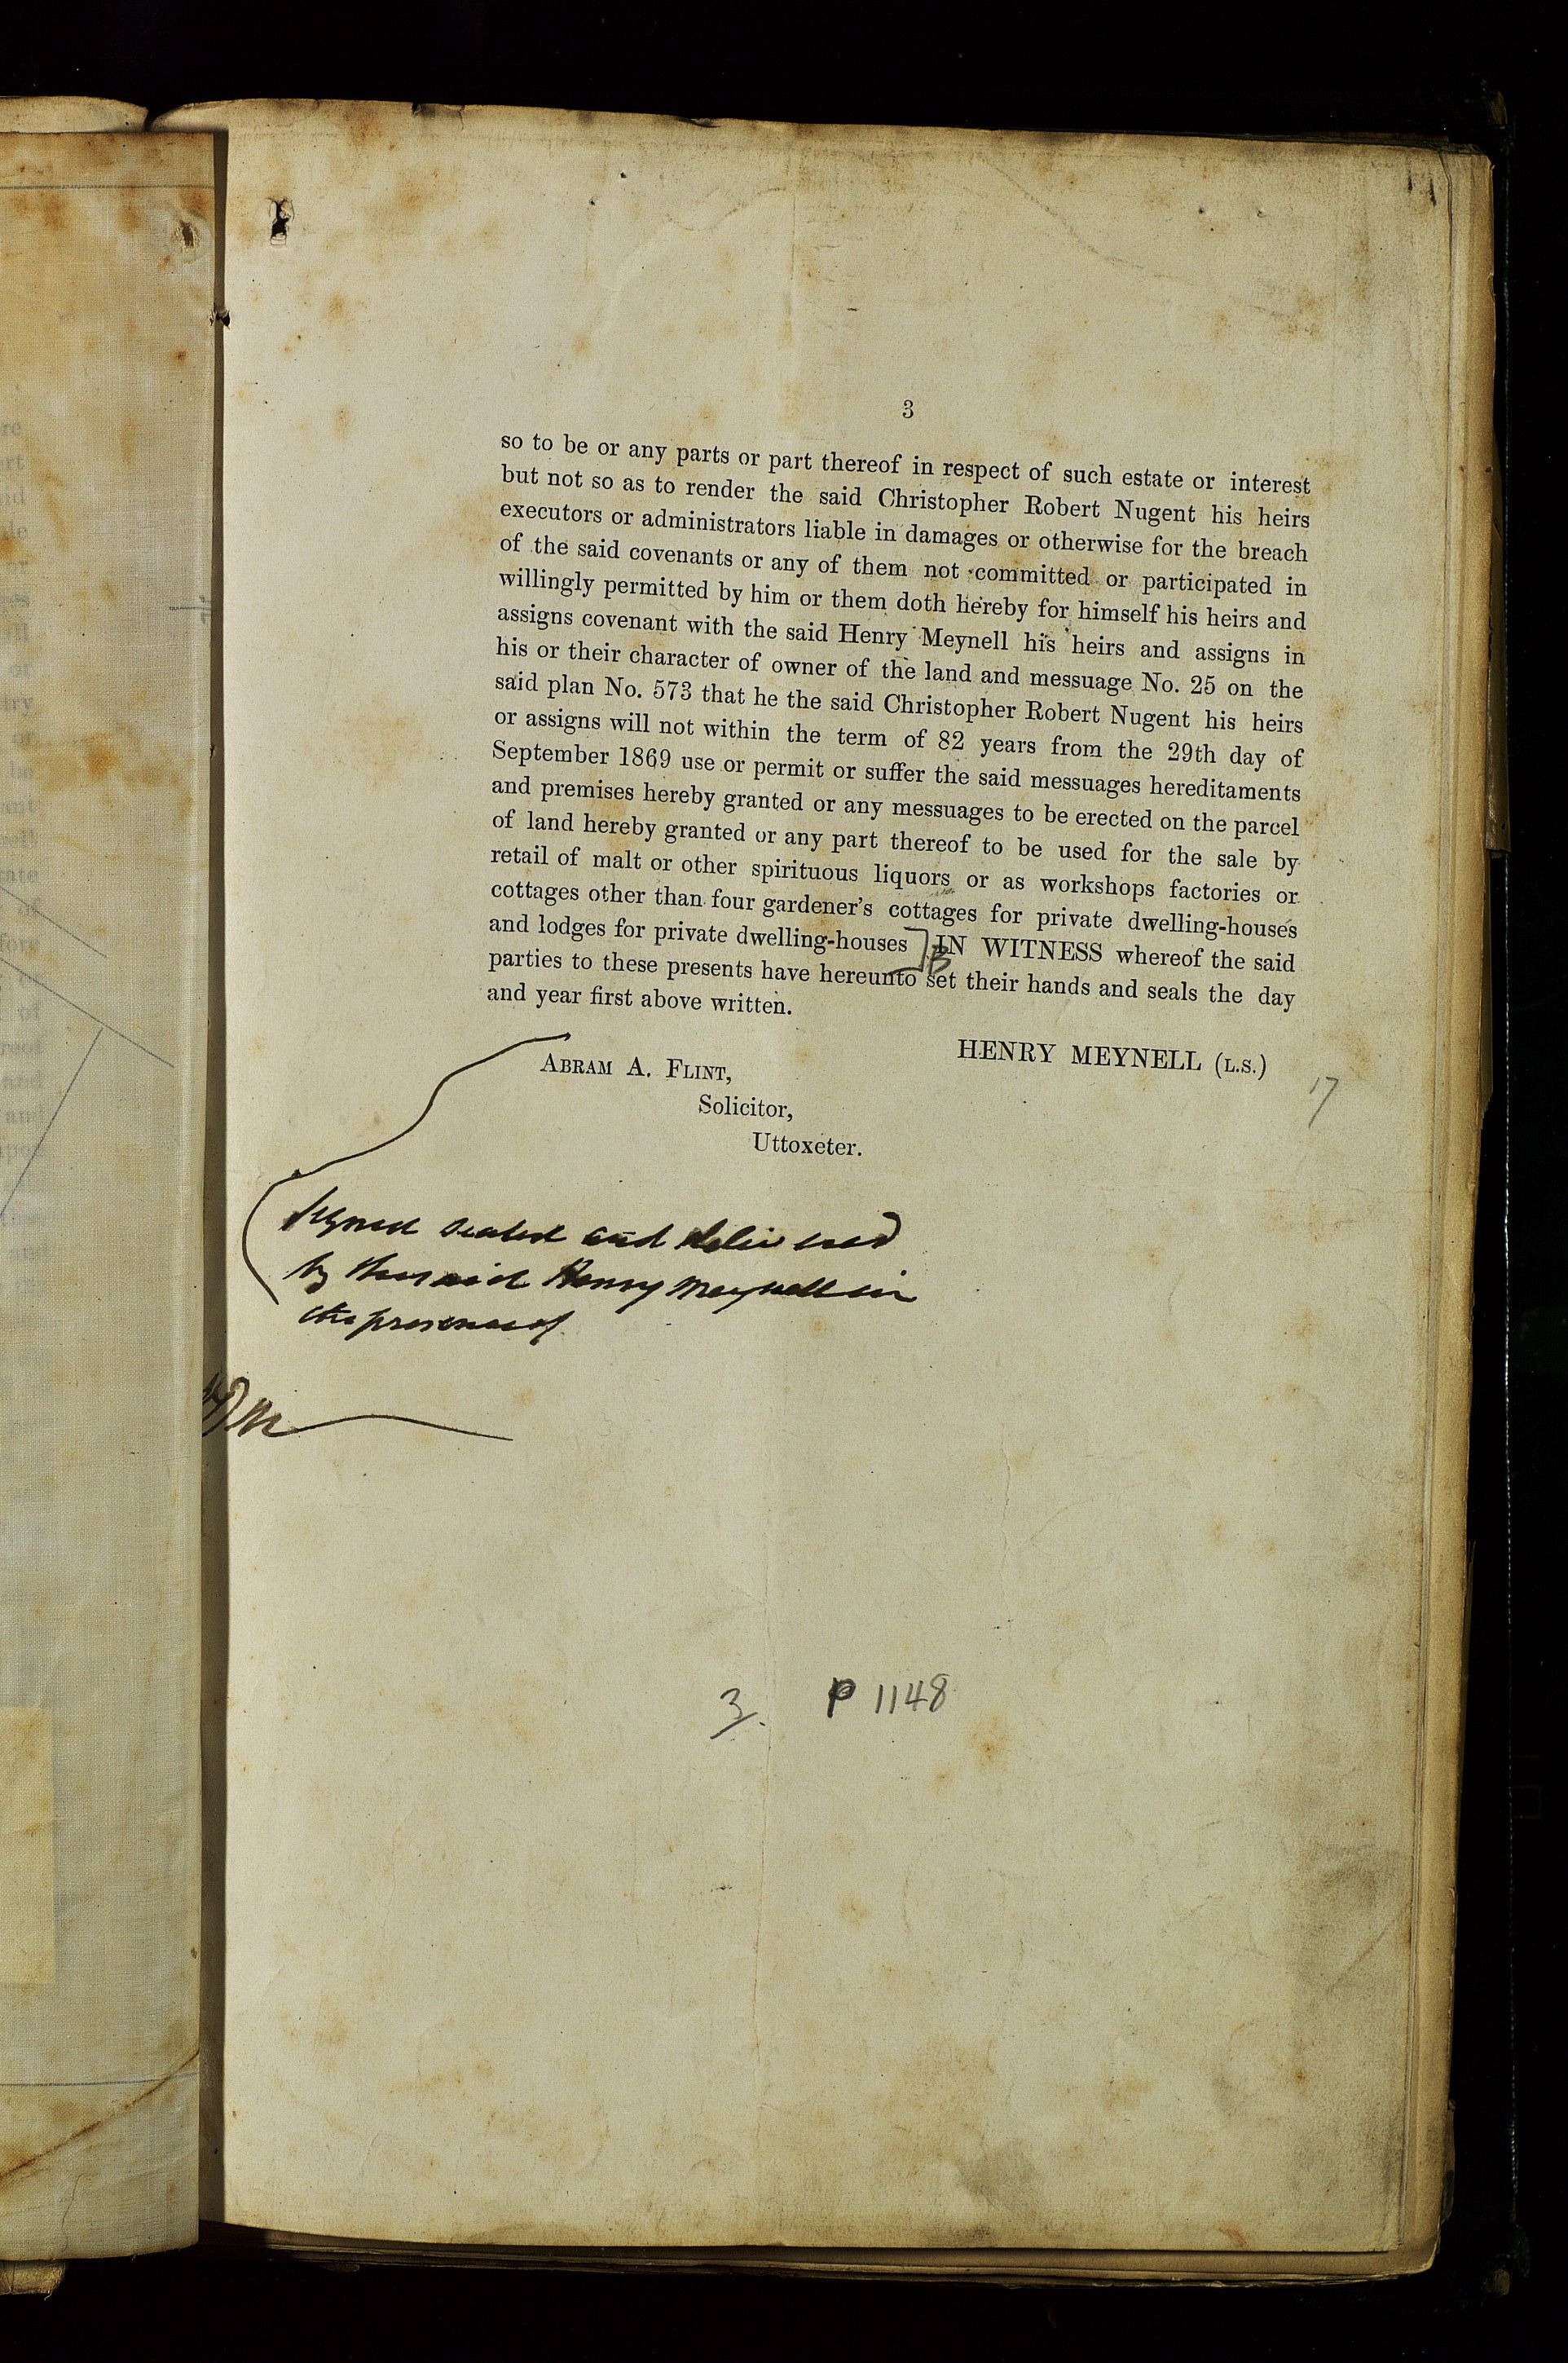 3
so to be or any parts or part thereof in respect of such estate or interest
but not so as to render the said Christopher Robert Nugent his heirs
executors or administrators liable in damages or otherwise for the breach
of the said covenants or any of them not committed or participated in
willingly permitted by him or them doth hereby for himself his heirs and
assigns covenant with the said Henry Meynell his heirs and assigns in
his or their character of owner of the land and messuage No. 25 on the
said plan No. 573 that he the said Christopher Robert Nugent his heirs
or assigns will not within the term of 82 years from the 29th day of
September 1869 use or permit or suffer the said messuages hereditaments
and premises hereby granted or any messuages to be erected on the parcel
of land hereby granted or any part thereof to be used for the sale by
retail of malt or other spirituous liquors or as workshops factories or
cottages other than four gardener's cottages for private dwelling-houses
and lodges for private dwelling-houses ] IN WITNESS whereof the said
parties to these presents have hereunto set their hands and seals the day
and year first above written.
HENRY MEYNELL (L.S.)
17
ABRAM A. FLINT,
Solicitor,
Uttoxeter.
Signed sealed and delivered
by the said Henry Meynell in
the presence of
3. P 1148